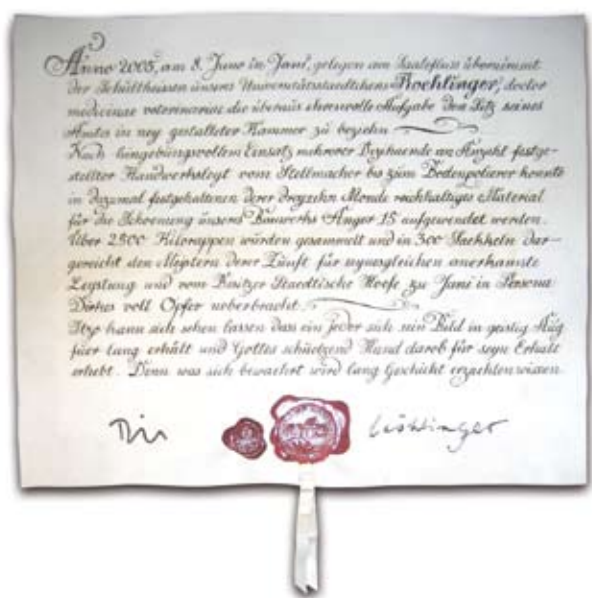 Anno 2005, am 8. Juno in Jani, gelegen am Saalefluss übernimmt
der Schultheissen unsers Universitätsstaedtchens Roehlinger, doctor
medicinae veterinariae die überaus ehrenvolle Aufgabe den Sitz seines
Amts in ney gestalleter Kammer zu beziehn
Nach hingebungsvollem Einsatz mehrerer Anzahl festge-
stellter vom Stellmacher bis zum Bodenpolierer konnte
in dazumal festgehaltenen derer dreyzehn Monde reichhaltiges Material
für die Schoenung unsers Bauwerks Anger 15 aufgewendet werden.
Über 2500 würden gesammelt und in 300 dar-
gereicht den Meistern derer Zünft für anerkannte
Leystung und vom Besitzer Staedtische Hoefe zu Jani in Persona
voll Opfer ueberbracht.
Itzo kann sich sehen lassen dass ein jeder sich sein Bild in geistig Aug
füer lang erhält und Gottes schützend Hand darob für seyn Erhalt
erhebt. Denn was sich bewaehrt wird lang Geschicht erzaehlen wissen.